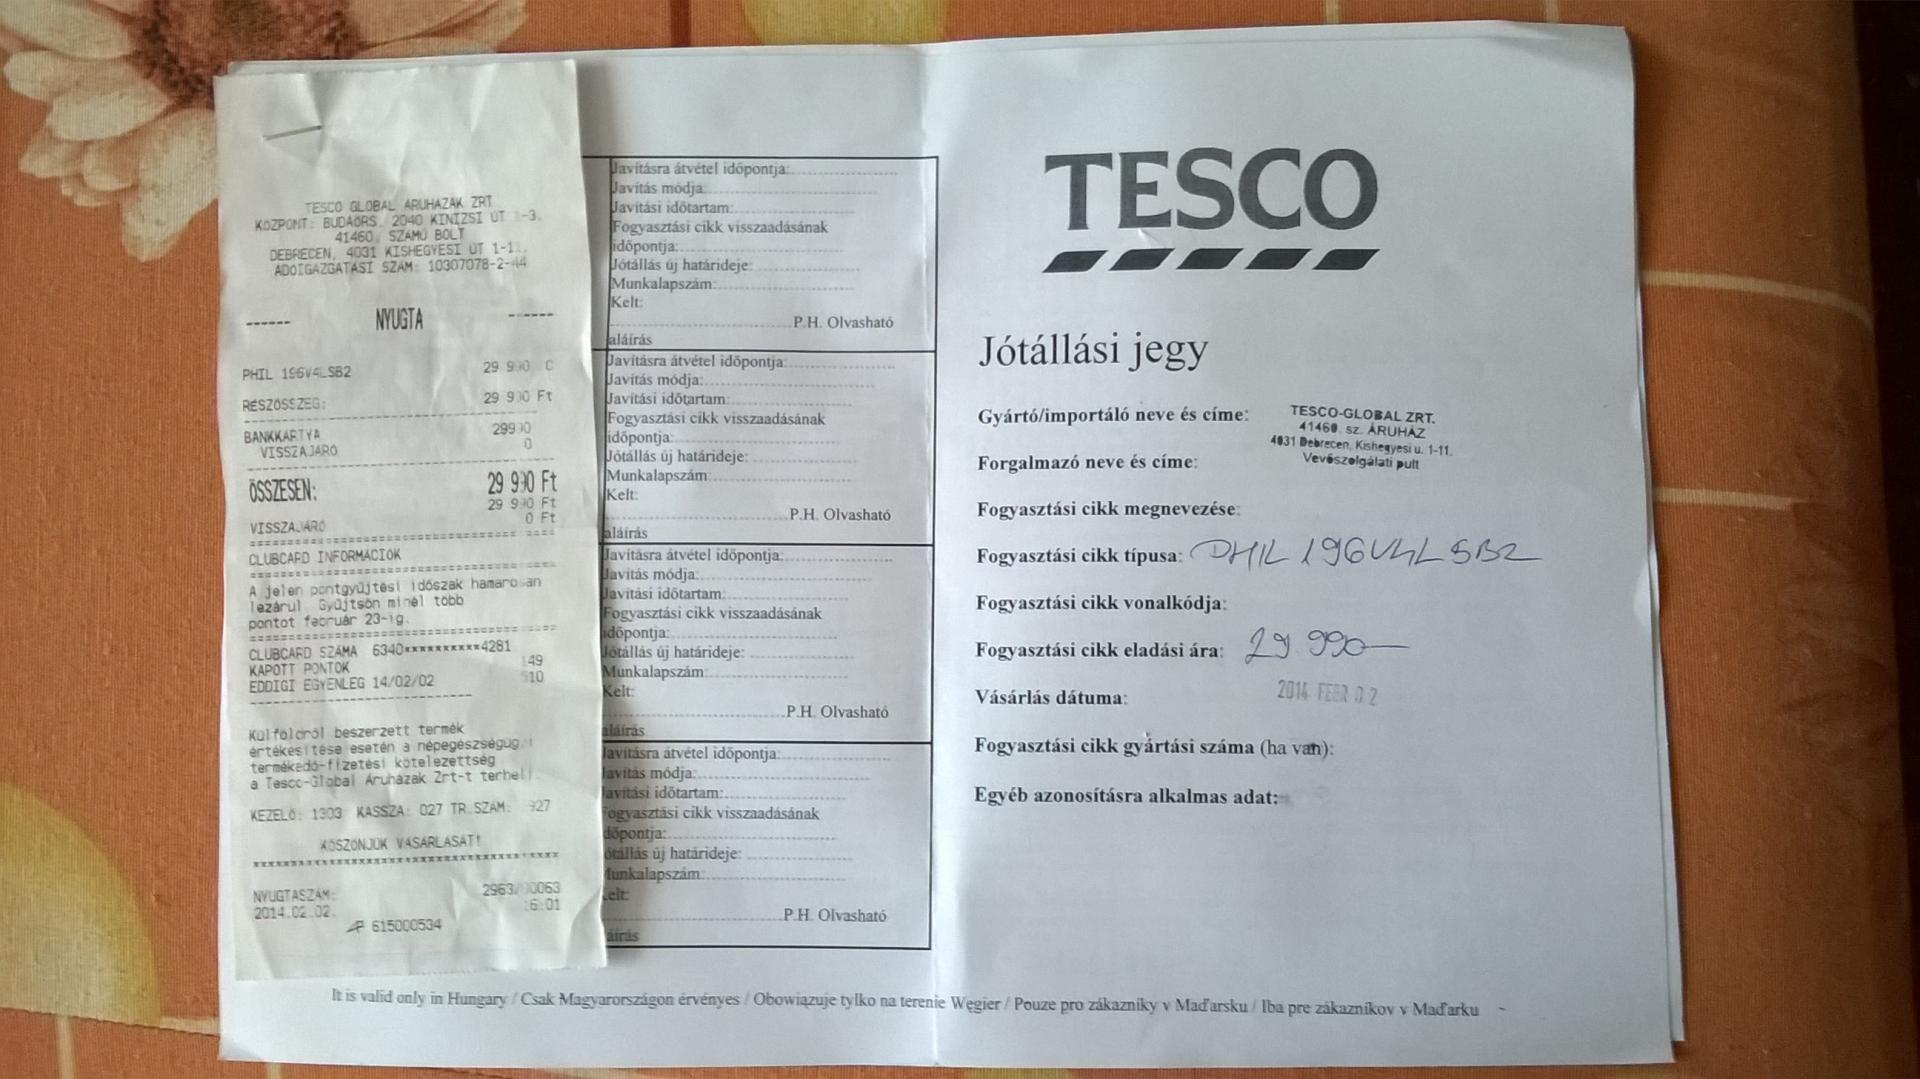 TESCO GLOBAL ÁRUHÁZAK ZRT
KÖZPONT: BUDAÖRS, 2040 KINIZSI ÚT 1-3.
41460. SZÁMÚ BOLT
DEBRECEN, 4031 KISHEGYESI ÚT 1-1
ADÓIGAZGATÁSI SZÁM: 10307078-2-44
------ NYUGTA ------
PHIL 196V4LSB2 29 990 C
RÉSZÖSSZEG: 29 990 Ft
BANKKÁRTYA 29990
VISSZAJÁRÓ 0
ÖSSZESEN: 29 990 Ft
29 990 Ft
VISSZAJÁRÓ 0 Ft
CLUBCARD INFORMÁCIÓK
A jelen pontgyűjtési időszak hamarosan
lezárul. Gyűjtsön minél több
pontot február 23-ig.
CLUBCARD SZÁMA 6340**********4281
KAPOTT PONTOK 149
EDDIGI EGYENLEG 14/02/02 510
Külföldről beszerzett termék
értékesítése esetén a népegészségügyi
termékadó-fizetési kötelezettség
a Tesco-Global Áruházak Zrt-t terheli.
KEZELŐ: 1303 KASSZA: 027 TR.SZÁM: 927
KÖSZÖNJÜK VÁSÁRLÁSÁT!
NYUGTASZÁM: 2963/00063
2014.02.02. 16:01
AP 615000534
Javításra átvétel időpontja:
Javítás módja:
Javítási időtartam:
Fogyasztási cikk visszaadásának
időpontja:
Jótállás új határideje:
Munkalapszám:
Kelt:
P.H. Olvasható
aláírás
Javításra átvétel időpontja:
Javítás módja:
Javítási időtartam:
Fogyasztási cikk visszaadásának
időpontja:
Jótállás új határideje:
Munkalapszám:
Kelt:
P.H. Olvasható
aláírás
Javításra átvétel időpontja:
Javítás módja:
Javítási időtartam:
Fogyasztási cikk visszaadásának
időpontja:
Jótállás új határideje:
Munkalapszám:
Kelt:
P.H. Olvasható
aláírás
Javításra átvétel időpontja:
Javítás módja:
Javítási időtartam:
Fogyasztási cikk visszaadásának
időpontja:
Jótállás új határideje:
Munkalapszám:
Kelt:
P.H. Olvasható
aláírás
TESCO
Jótállási jegy
Gyártó/importáló neve és címe:
TESCO-GLOBAL ZRT.
41460. sz. ÁRUHÁZ
4031 Debrecen, Kishegyesi u. 1-11.
Vevőszolgálati pult
Forgalmazó neve és címe:
Fogyasztási cikk megnevezése:
Fogyasztási cikk típusa: PHIL 196V4LSB2
Fogyasztási cikk vonalkódja:
Fogyasztási cikk eladási ára: 29.990
Vásárlás dátuma: 2014 FEBR 02
Fogyasztási cikk gyártási száma (ha van):
Egyéb azonosításra alkalmas adat:
It is valid only in Hungary / Csak Magyarországon érvényes / Obowiązuje tylko na terenie Węgier / Pouze pro zákazníky v Maďarsku / Iba pre zákazníkov v Maďarku